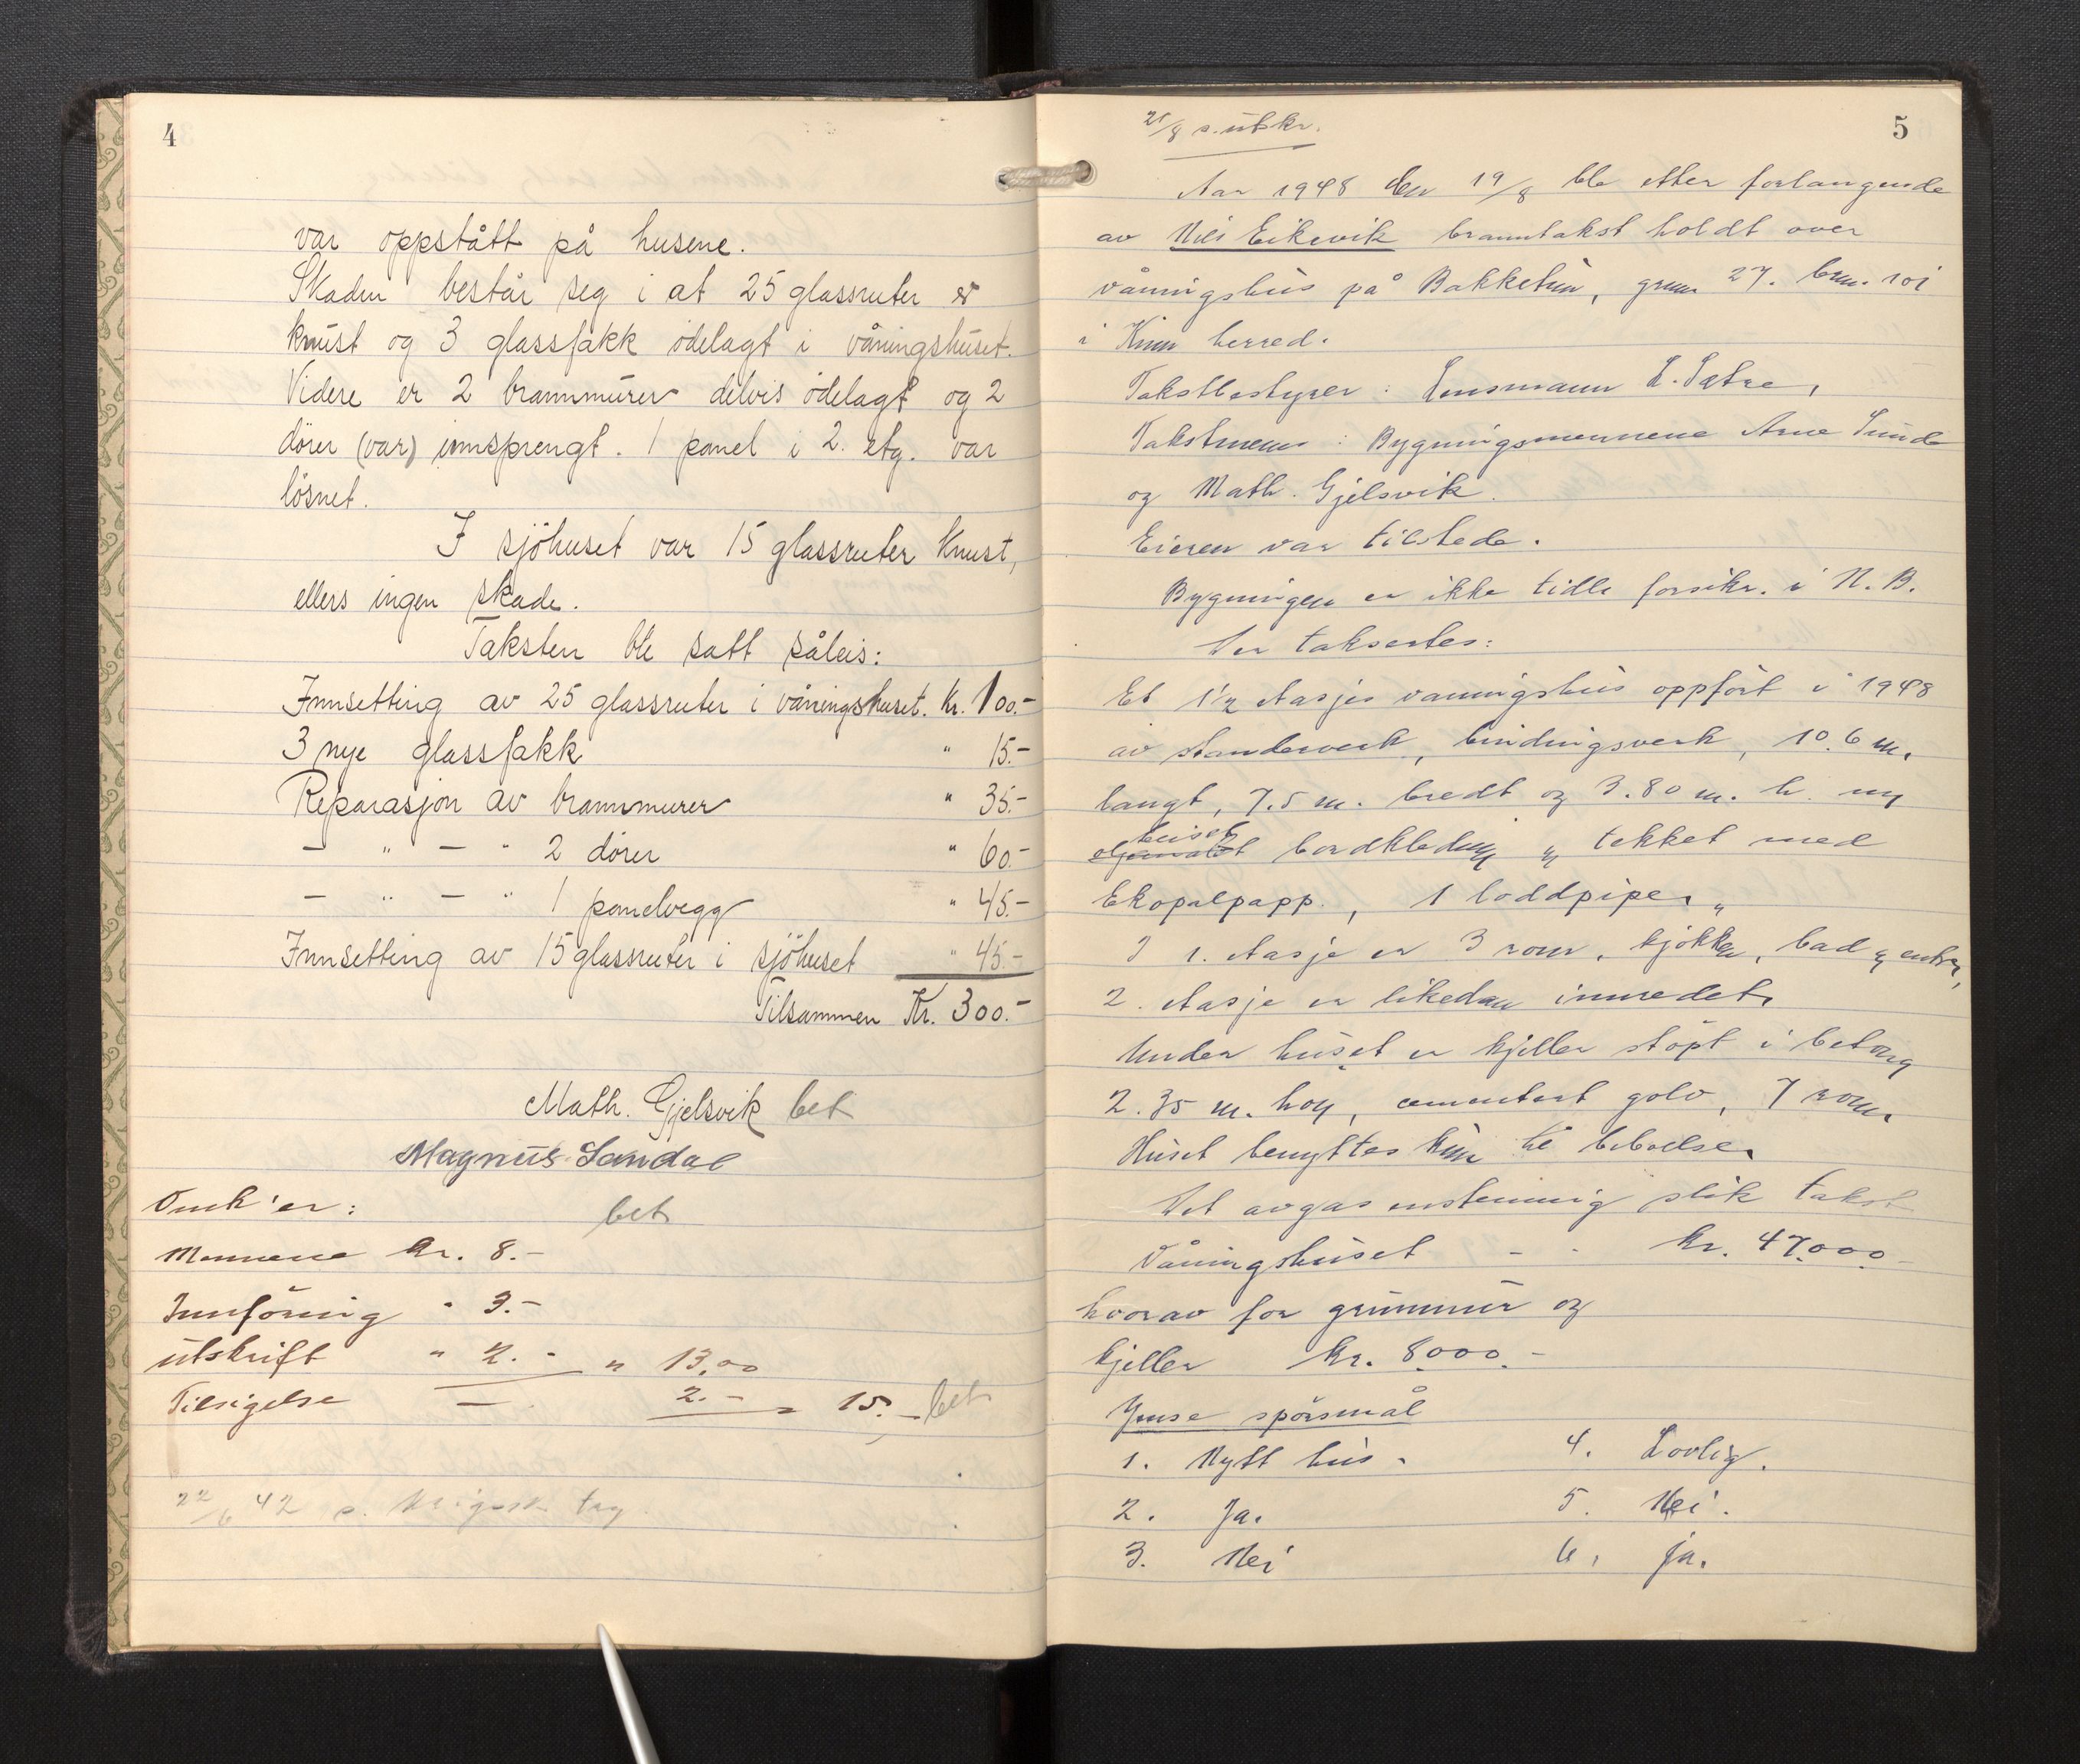 4
var oppstått på husene.
Skaden består seg i at 25 glassruter er
knust og 3 glassfakk ödelagt i våningshuset.
Videre er 2 brannmurer delvis ödelagt og 2
dörer (var) innsprengt. 1 panel i 2. etg. var
lösnet.
I sjöhuset var 15 glassruter knust,
ellers ingen skade.
Taksten ble satt såleis:
Innsetting av 25 glassruter i våningshuset. Kr. 100.-
3 nye glassfakk " 15.-
Reparasjon av brannmurer " 35.-
— " — " 2 dörer " 60.-
— " — " 1 panelvegg " 45.-
Innsetting av 15 glassruter i sjöhuset " 45.-
Tilsammen Kr. 300.-
Math. Gjelsvik bet
Magnus Sandal
Omk'er: bet
Mennene kr. 8.-
Innföring " 3.-
utskrift " 2.- " 13,00
Tilsigelse — 2.- = 15.- bet
22/6 42 s. tryg
5
21/8 s. utskr.
Aar 1948 den 19/8 ble etter forlangende
av Nils Eikevik branntakst holdt over
våningshus på Bakketun, grnr 27. bnr. 101
i Kinn herred.
Takstbestyrer: Lensmann L. Sætre,
Takstmenn: Bygningsmennene Arne Sunde
og Math. Gjelsvik.
Eieren var tilstede.
Bygningen er ikke tidl. forsikr. i N. B.
Der taksertes:
Et 1½ etasjes vaningshus oppfört i 1948
av standerverk, bindingsverk, 10.6 m.
langt, 7.5 m. bredt og 3.80 m. h. ny
oljemalt beiset bordkledning og tekket med
Ekopalpapp., 1 loddpipe. "
I 1. etasje er 3 rom, kjökken, bad og entre,
2. etasje er likedan innredet.
Under huset er kjeller stöpt i betong
2.35 m. höy, cementert golv, 7 rom.
Huset benyttes kun til beboelse.
Det avgas enstemmig slik takst
Våningshuset - - kr. 47.000.-
hvorav for grunnmur og
kjeller kr. 8.000.-
Ymse spörsmål
1. Nytt hus. 4. Lovlig.
2. Ja. 5. Nei.
3. Nei 6. Ja.